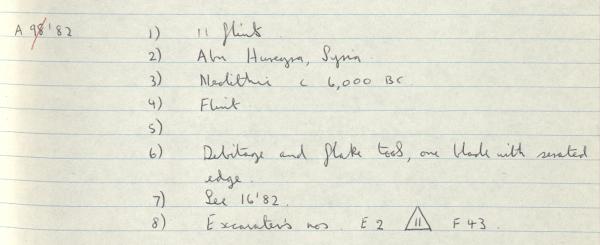 A 98'82 1) 11 flints.
2) Abu Hureyra, Syria.
3) Neolithic c 6,000 BC
4) Flint
5)
6) Debitage and flake tools, one blade with serrated
edge.
7) See 16'82.
8) Excavator's nos. E2 11 F43.